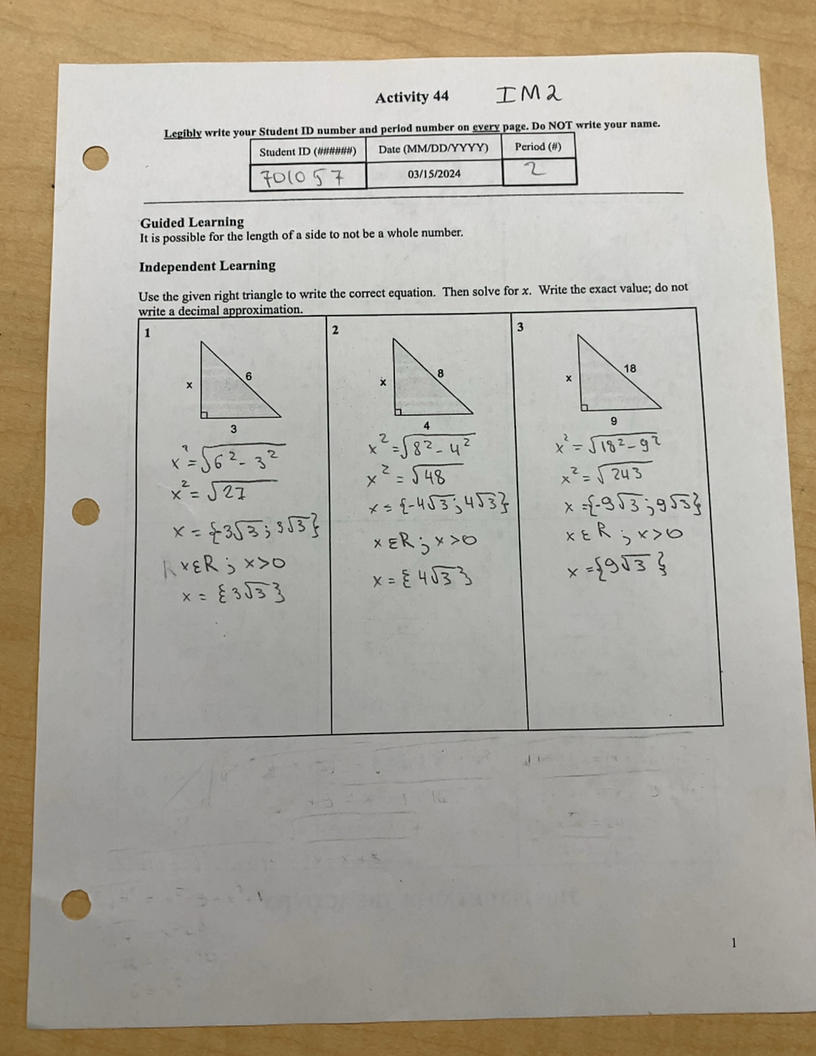 Activity 44 IM2
Legibly write your Student ID number and period number on every page. Do NOT write your name.
Student ID (######) Date (MM/DD/YYYY) Period (#)
701057 03/15/2024 2
Guided Learning
It is possible for the length of a side to not be a whole number.
Independent Learning
Use the given right triangle to write the correct equation. Then solve for x. Write the exact value; do not
write a decimal approximation.
1
x
6
3
x² = √6² - 3²
x² = √27
x = {3√3; 3√3}
xεR ; x>0
x = {3√3}
2
x
8
4
x² = √8² - 4²
x² = √48
x = {-4√3; 4√3}
xεR ; x>0
x = {4√3}
3
x
18
9
x² = √18² - 9²
x² = √243
x = {-9√3; 9√3}
xεR ; x>0
x = {9√3}
1